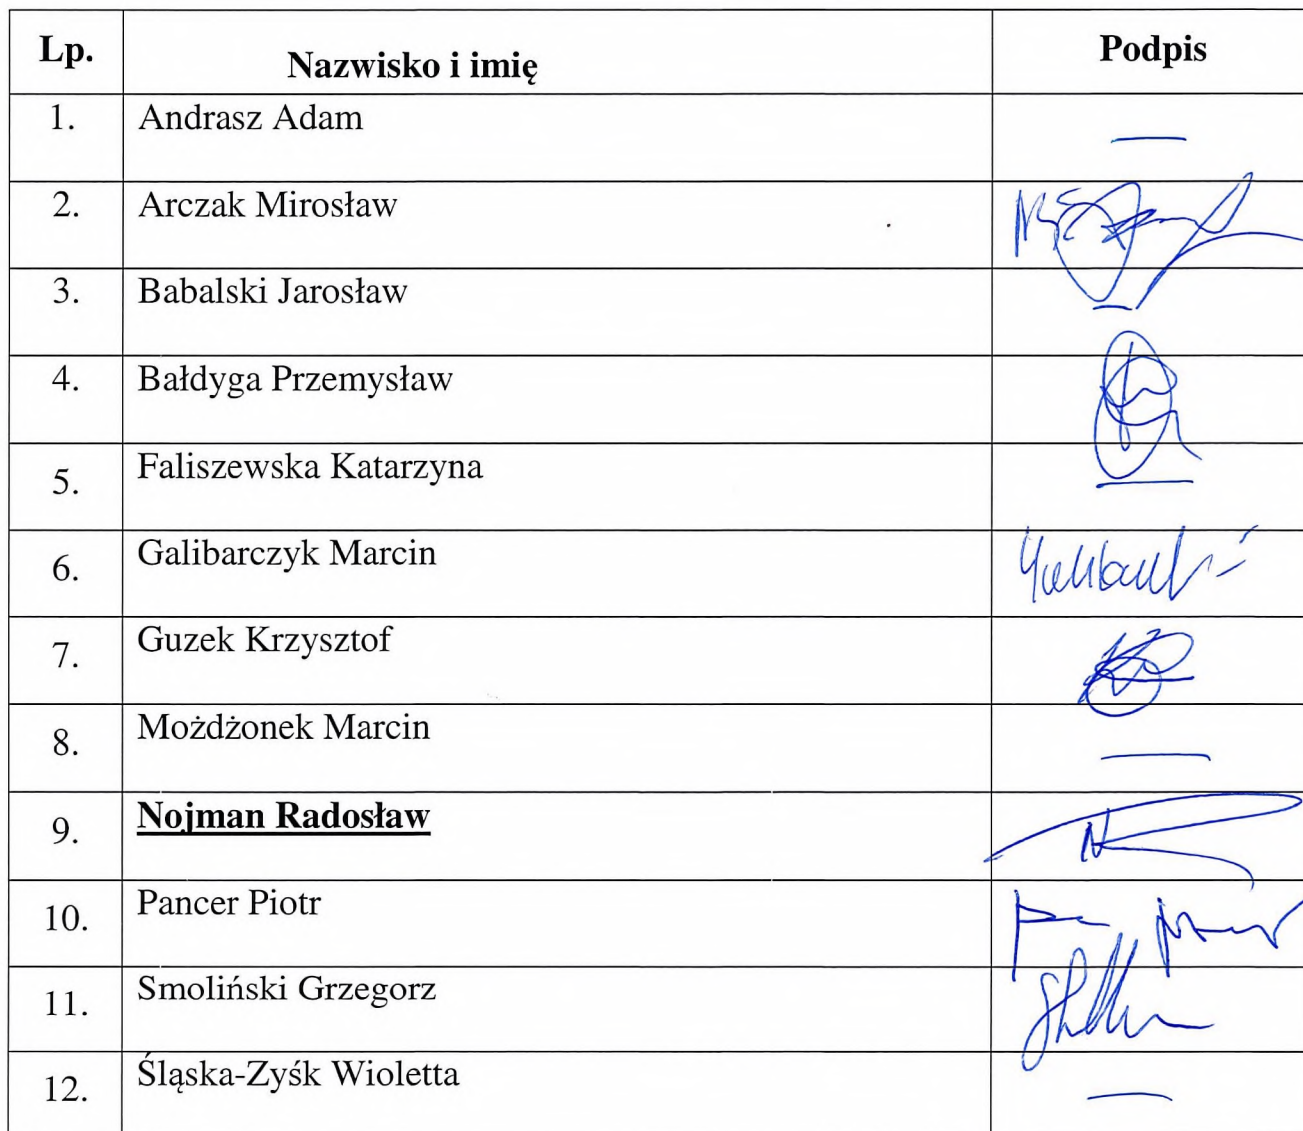 Lp. Nazwisko i imię Podpis
1. Andrasz Adam —
2. Arczak Mirosław
3. Babalski Jarosław —
4. Bałdyga Przemysław
5. Faliszewska Katarzyna —
6. Galibarczyk Marcin
7. Guzek Krzysztof
8. Możdżonek Marcin —
9. Nojman Radosław
10. Pancer Piotr
11. Smoliński Grzegorz
12. Śląska-Zyśk Wioletta —